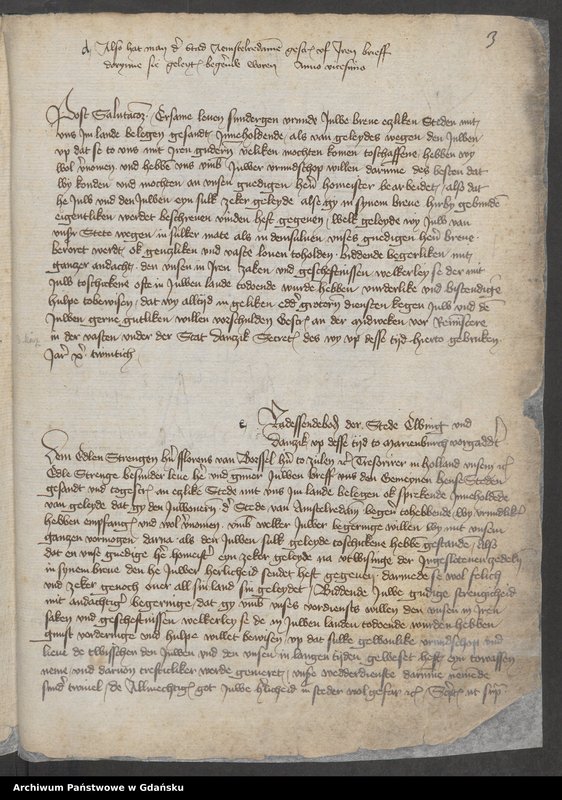 3
Also hat man d' Stad Aemstelredamme gescr. vf Iren brieff
dorynne sie geleyt begernde woren Anno vicesimo
Post Salutacoem Ersame leuen sundergen vrunde Juwe breue egliken Steden mit
vns im lande belegen gesandt Inneholdende als van geleydes wegen den Juwen
vp dat se to vns mit eren guderen veliken mochten komen toschaffene hebben wy
wol vernomen und hebbe vns vmb Juwer vrundschop willen darinne des besten dat
wy konden vnd mochten an vnsen gnedigen hern homeister bearbeidet also dat
he Juw vnd den Juwen eyn sulk zeker geleyde alse gy in synem breue hirby gebunden
eigentliken werdet beschreuen vinden heft gegeuen welk geleyde wy Juw van
vnser Stete wegen in sulker mate als in demsuluen vnses gnedigen hern breue
beroret werdt ok gentzliken vnd vaste louen toholden biddende begerliken mit
gantzer andacht den vnsen in Iren zaken vnd geschefftnissen welkerley se der mit
Juw toschickene ofte in Juwen lande todoende wurde hebben vorderlike vnd bistendige
hulpe tobewisen dat wy alltijd in geliken edder grotern diensten kegen Juw vnd de
Juwen gerne gutliken willen vorschulden Gescr. an der mydweken vor Reminiscere
in der vasten vnder der Stat Danczik Secret des wy vp desse tijd hierto gebruken
Jar xx twintich
Radessendeboden der Stede Elbing vnd
Danzik vp desse tijd to Marienburch vorgaddert
Dem Edlen Strengen hern fflorens van Borssel hern to Zulen Tresorirer in Holland vnsem
Edle Strenge besunder leue here vnd gunner Juwen breff vns den Gemeynen hense Steden
gesandt vnd togescr. an eglike Stede mit vns im lande belegen ok sprekende Inneholdende
van geleyde dat gy den Juwonern der Stede van Amstelredam begern tohebbende wy vrundliken
hebben empfangen vnd wol vernomen vmb welker Juwer begeringe willen wy mit vnsem
gantzen vormogen darna als den Juwen sulk geleyde toschickene hebbe gestande also
dat en vnse gnedige here homeister eyn zeker geleyde na vtwisinge der Ingeslotenen zedeln
in synem breue den he Juwer herlicheid sendet heft gegeuen darmede se wol felich
vnd zeker genoch ouer all sin land sin geleydet Biddende Juwe gudige strengicheid
mit andachtiger begeringe dat gy vmb vnses vordienstes willen den vnsen in Iren
saken vnd geschefftnissen welkerley se de in Juwen landen todoende wurden hebben
gunst vorderinge vnd hulpe willet bewisen vp dat sulke gewonlike vrundschop vnd
lieue de twisschen den Juwen vnd den vnsen in langen tijden gewesst heft eyn towassen
neme vnd daruon trefftliker werde gemeret vnse wedderdienste darinne nemede
sunder twiuel De Allmechtige got Juwe herlicheid in steder wolgefar Script ut supra
Archiwum Państwowe w Gdańsku